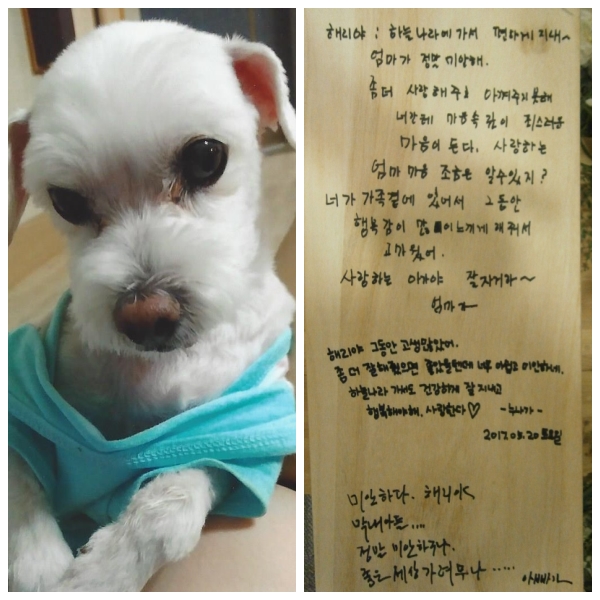 해리야! 하늘나라에 가서 편하게 지내~
엄마가 정말 미안해.
좀 더 사랑해주고 아껴주지 못해
너한테 마음속 깊이 죄스러운
마음이 든다. 사랑하는
엄마 마음 조금은 알수있지?
너가 가족곁에 있어서 그동안
행복감이 많이 느끼게 해줘서
고마웠어.
사랑하는 아가야 잘자거라~
엄마가
해리야 그동안 고생많았어.
좀 더 잘해줬으면 좋았을텐데 너무 아쉽고 미안하네.
하늘나라 가서도 건강하게 잘 지내고
행복해야해. 사랑한다♡ -누나가-
2017.04.20
미안하다. 해리야
정말 미안하구나.
좋은 세상 가려무나 .....
아빠가